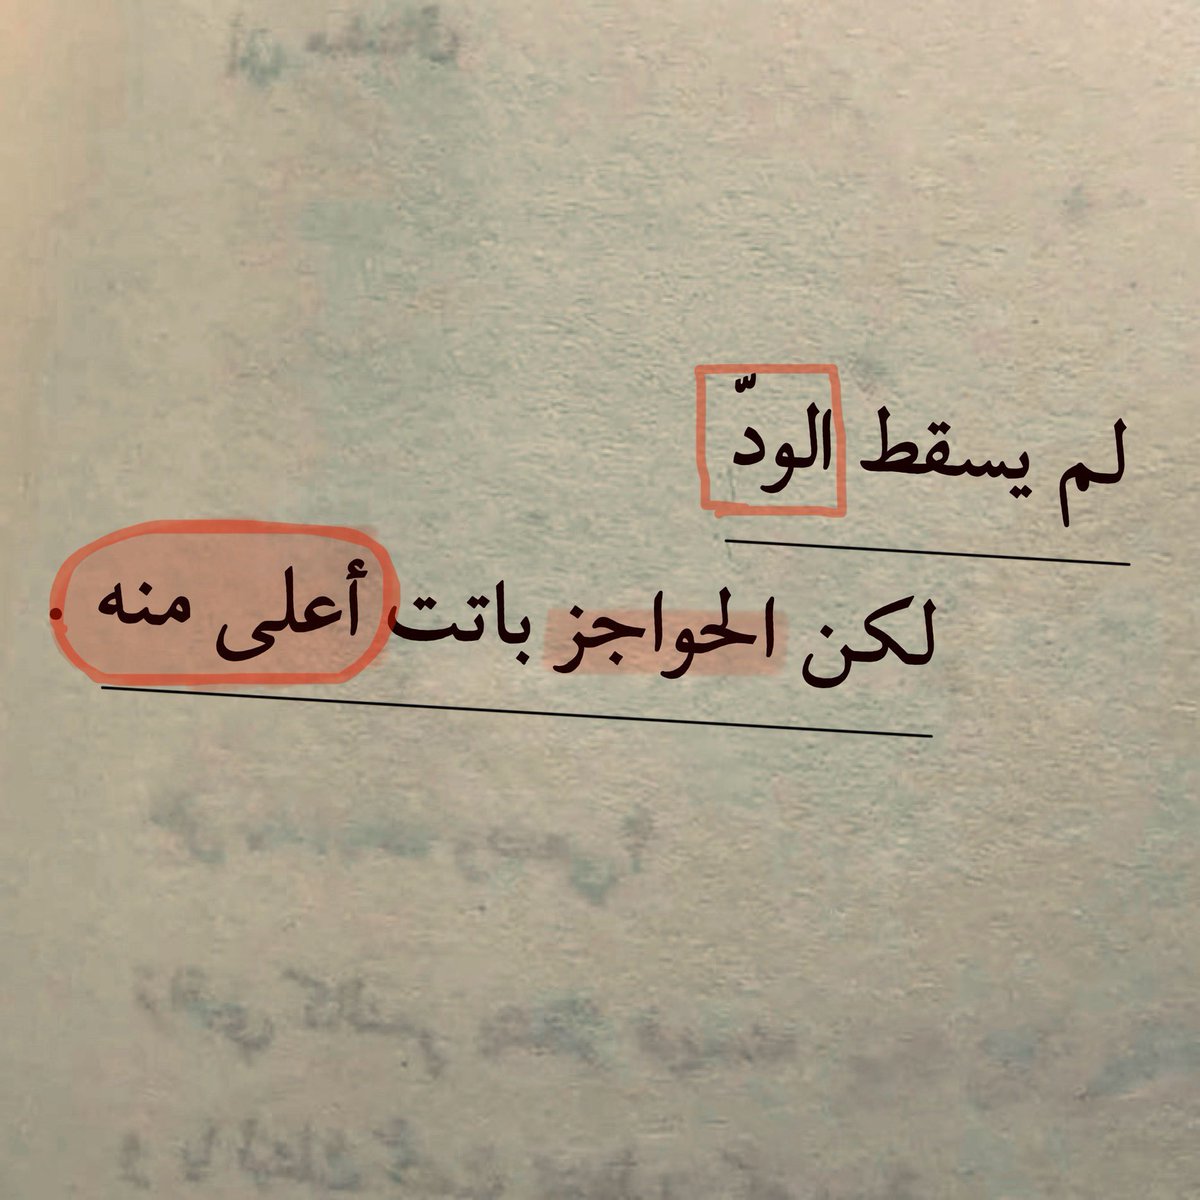 لم يسقط الودّ
لكن الحواجز باتت أعلى منه .